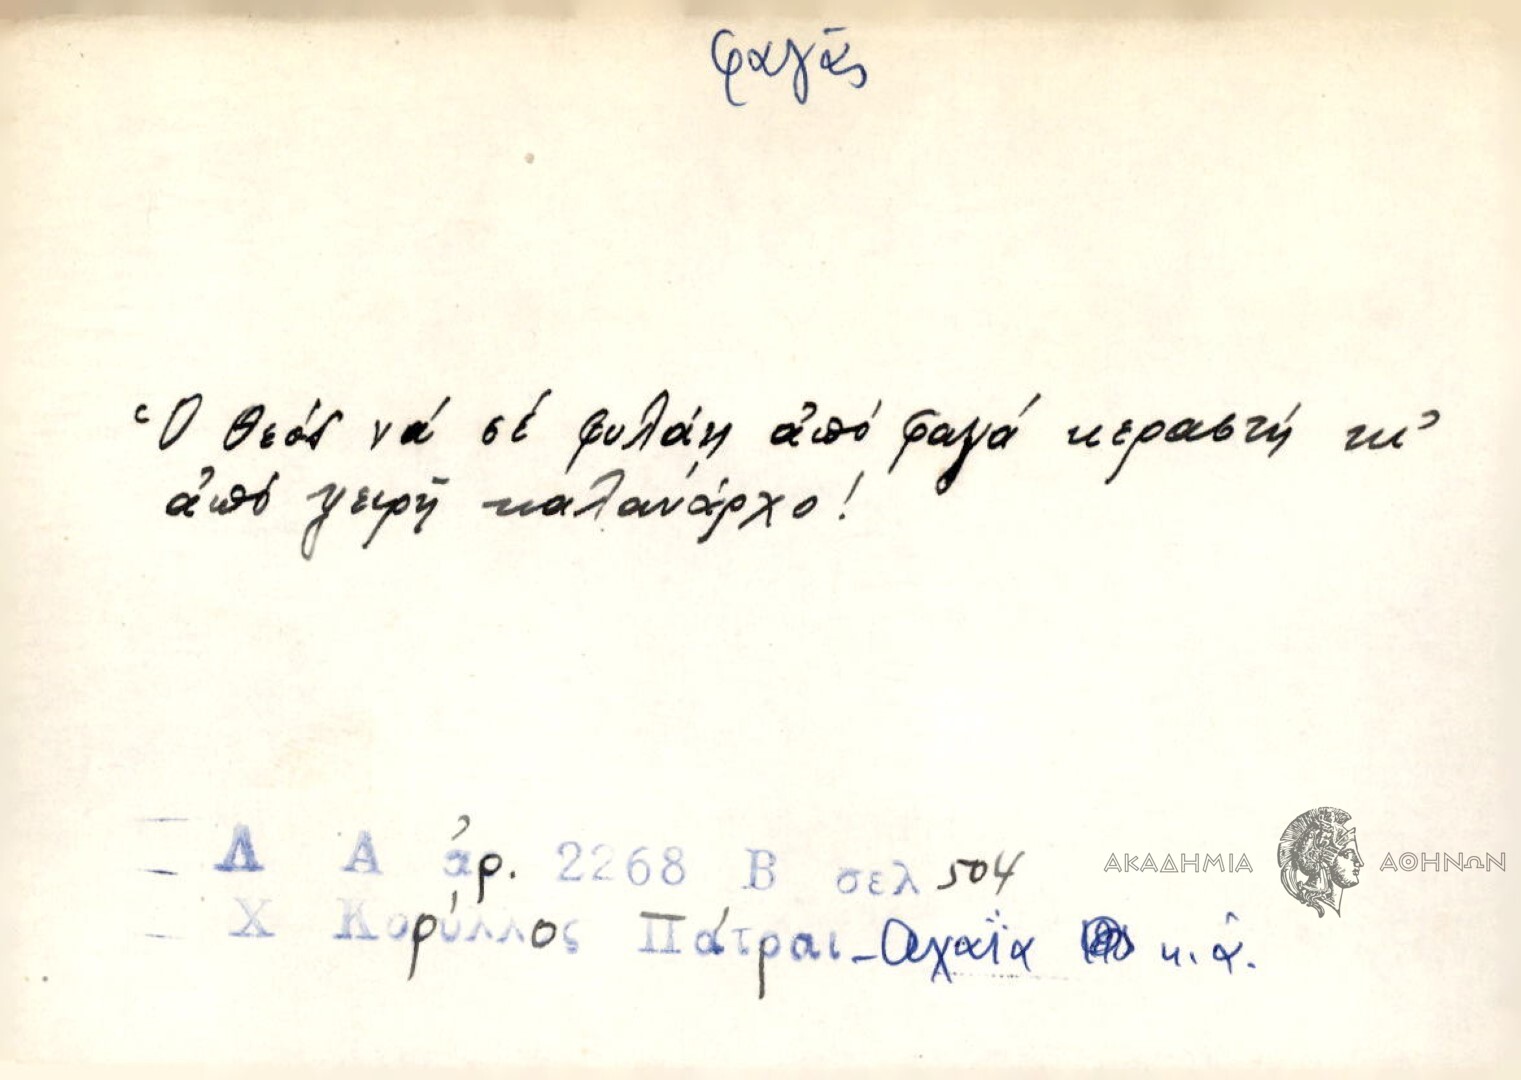 φαγᾶς
Ὁ Θεός νά σέ φυλάῃ ἀπό φαγά κεραστή κι'
ἀπό ψειρῆ καλανάρχο!
Λ Α ἀρ. 2268 Β σελ 504
Χ Κορύλλος Πάτραι - Αχαΐα κ. ἀ.
ΑΚΑΔΗΜΙΑ ΑΘΗΝΩΝ